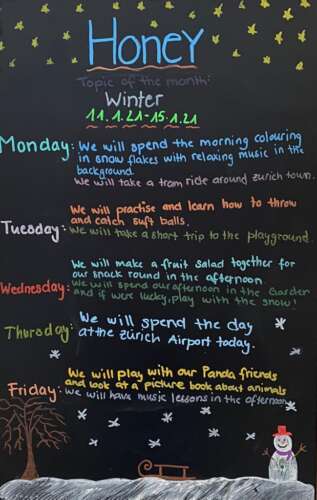 Honey
Topic of the month:
Winter
11.1.21-15.1.21
Monday: We will spend the morning colouring
in snow flakes with relaxing music in the
background.
We will take a tram ride around zurich town.
Tuesday: We will practise and learn how to throw
and catch soft balls.
We will take a short trip to the playground.
Wednesday: We will make a fruit salad together for
our snack round in the afternoon.
We will spend our afternoon in the Garden
and if were lucky, play with the snow!
Thursday: We will spend the day
at the Zürich Airport today.
Friday: We will play with our Panda friends
and look at a picture book about animals
We will have music lessons in the afternoon.